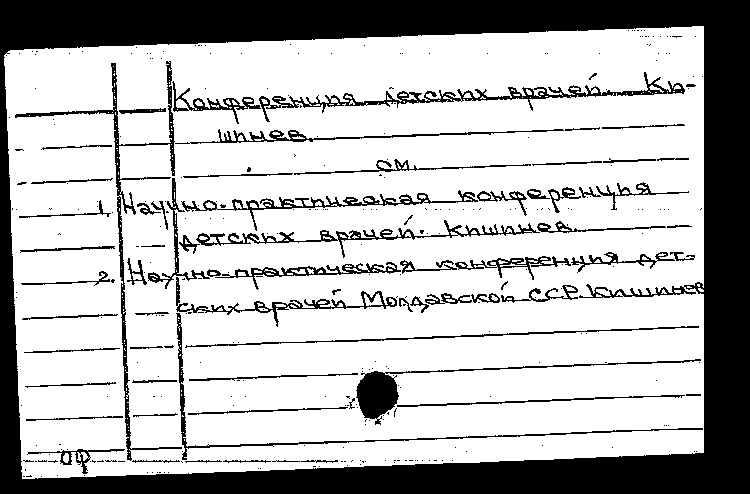 Конференция детских врачей. Ки-
шинев.
см.
1. Научно-практическая конференция
детских врачей. Кишинев.
2. Научно-практическая конференция дет-
ских врачей Молдавской ССР. Кишинев
оф